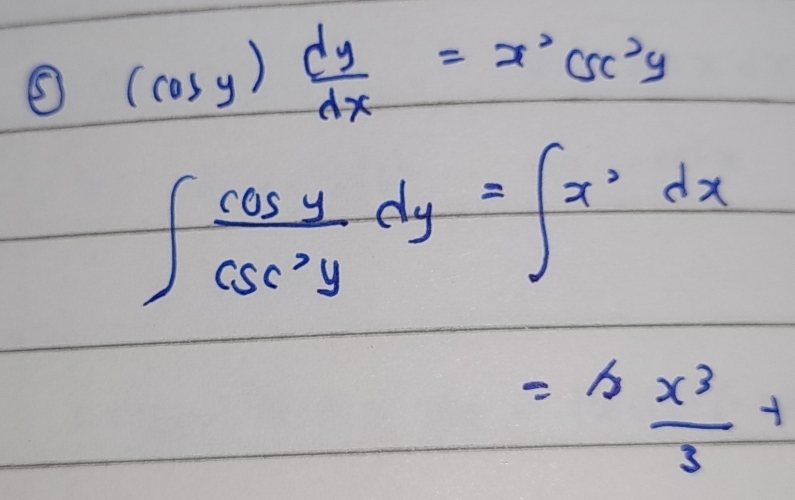 ⑤ (cos y) dy/dx = x² csc²y
∫ cos y / csc²y dy = ∫ x² dx
= x³/3 +